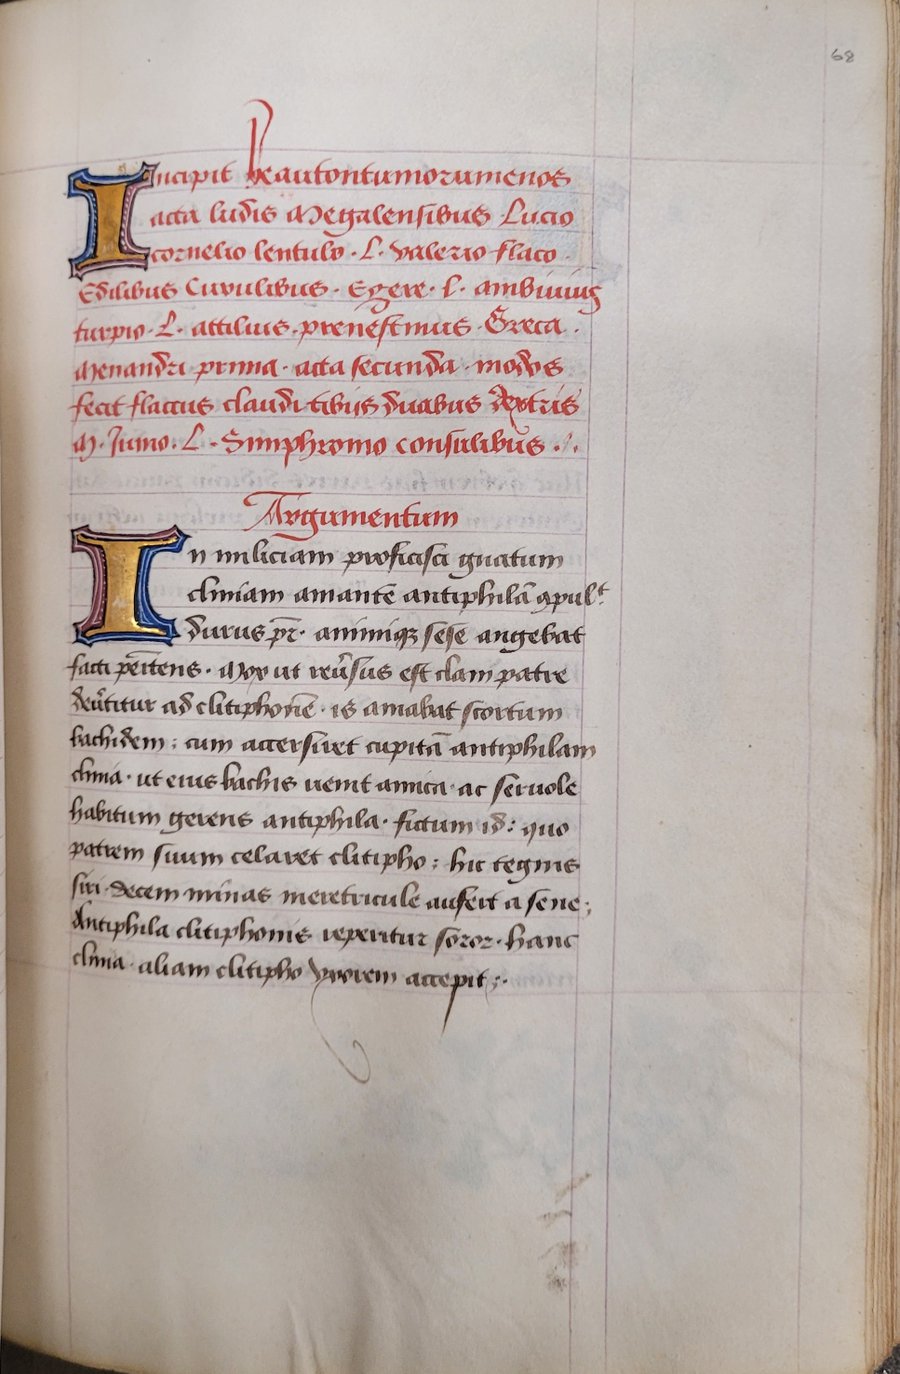 68
Incipit heautontumorumenos
acta ludis Megalensibus Lucio
cornelio lentulo · L · valerio flaco ·
Edilibus Curulibus · Egere · l · ambiuiug
turpio · L · attilius · prenestinus · Greca ·
Menandri prima · acta secunda · modos
fecit flaccus claudi tibijs duabus dextris
M · Junio · L · Simphronio consulibus ·/·
Argumentum
In miliciam proficisci gnatum
cliniam amantē antiphilā ꝯpulᵗ
durus pr̄ · animiqꝫ sese angebat
facti pēitens · Mox ut reũsus est clam patre
deũtitur ad clitiphonē · is amabat scortum
bachidem : cum accersiret cupitā antiphilam
clinia · ut eius bachis uenit amica · ac seruole
habitum gerens antiphila · fictum id : quo
patrem suum celaret clitipho : hic tegnis
siri · decem minas meretricule aufert a sene ;
Antiphila clitiphonis reperitur soror · hanc
clinia · aliam clitipho yxorem accepit ; ·